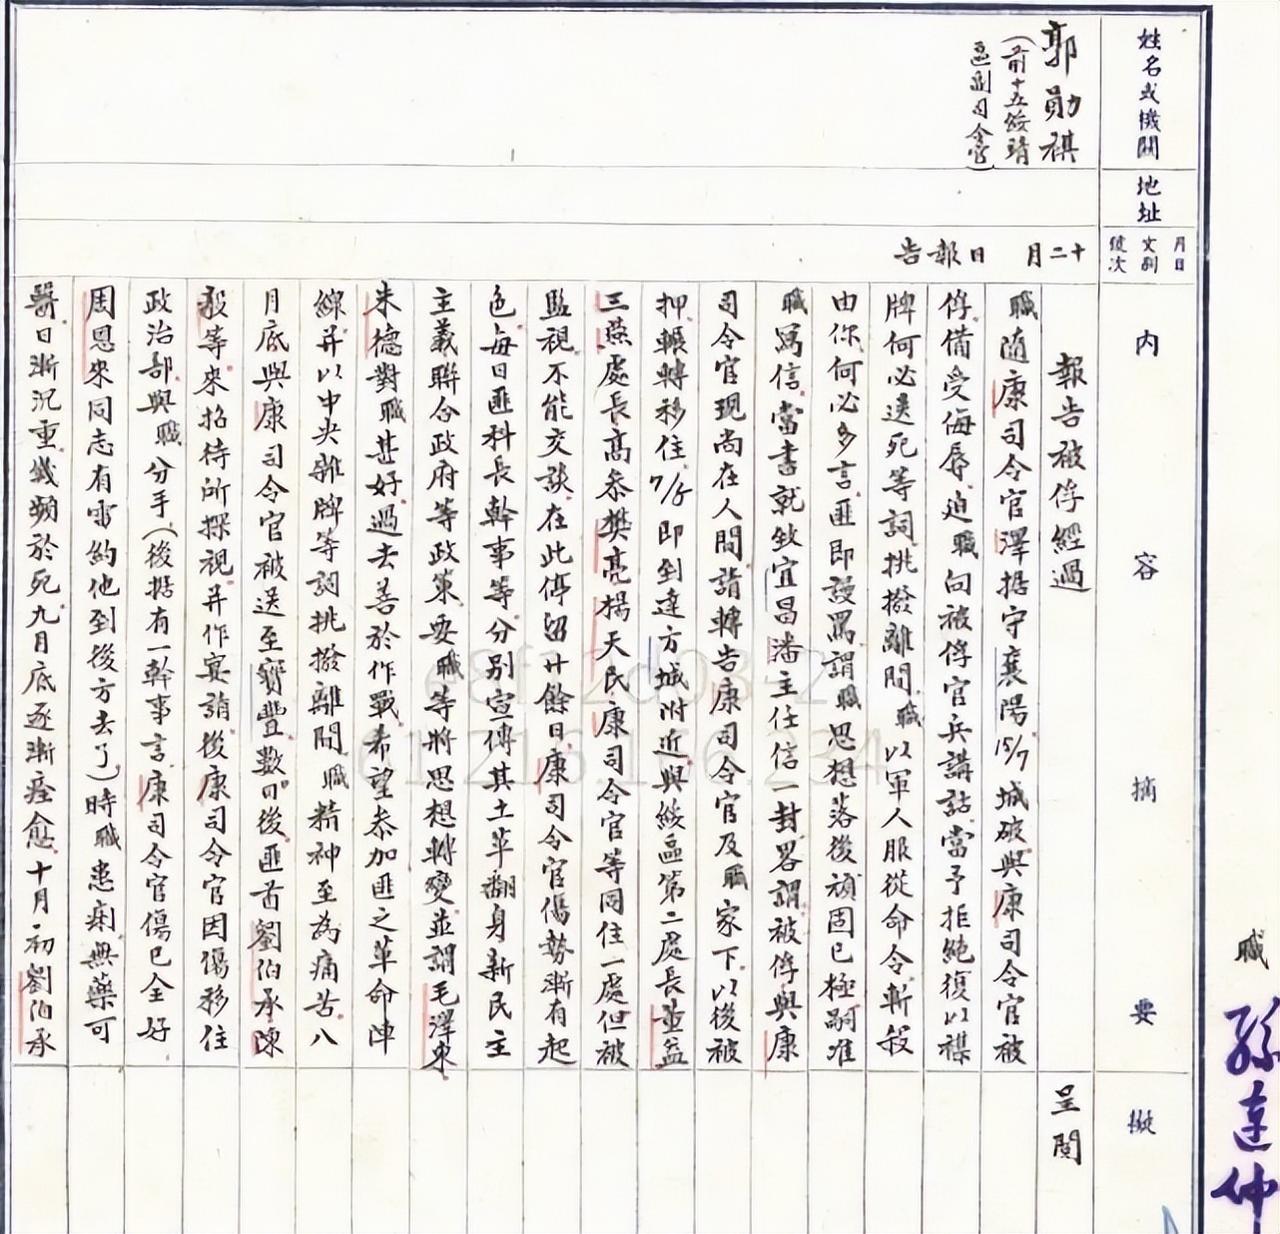 姓名或機關
地址
月日
文別
號次
內容摘要
擬
郭勛祺
(前十五綏靖
區副司令官)
十二月 日報告
報告被俘經過
職隨康司令官澤据守襄陽15/7城破與康司令官被
俘備受侮辱迫職向被俘官兵講話當予拒絕復以雜
牌何必送死等詞挑撥離間職以軍人服從命令斬殺
由你何必多言匪即謾罵謂職思想落後頑固已極嗣准
職寫信當書就致宜昌潘主任信一封畧謂被俘與康
司令官現尚在人間請轉告康司令官及職家下以後被
押輾轉移住7/5即到達方城附近與綏區第二處長董益
三燕處長高參樊亮楊天民康司令官等同住一處但被
監視不能交談在此停留廿餘日康司令官傷勢漸有起
色每日匪科長幹事等分別宣傳其土革翻身新民主
主義聯合政府等政策要職等將思想轉變並謂毛澤東
朱德對職甚好過去善於作戰希望參加匪之革命陣
線并以中央雜牌等詞挑撥離間職精神至為痛苦八
月底與康司令官被送至寶豐數日後匪首劉伯承陳
毅等來招待所探視并作宴請後康司令官因傷移住
政治部與職分手(後据有一幹事言康司令官傷已全好
周恩來同志有電約他到後方去了)時職患痢無藥可
醫日漸沉重幾頻於死九月底逐漸痊愈十月初劉伯承
呈閱
職
孫連仲
e8f12d03-2
61.216.156.234